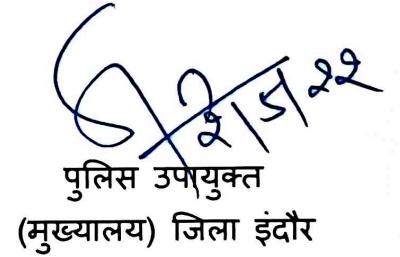 २।५।२२
पुलिस उपायुक्त
(मुख्यालय) जिला इंदौर